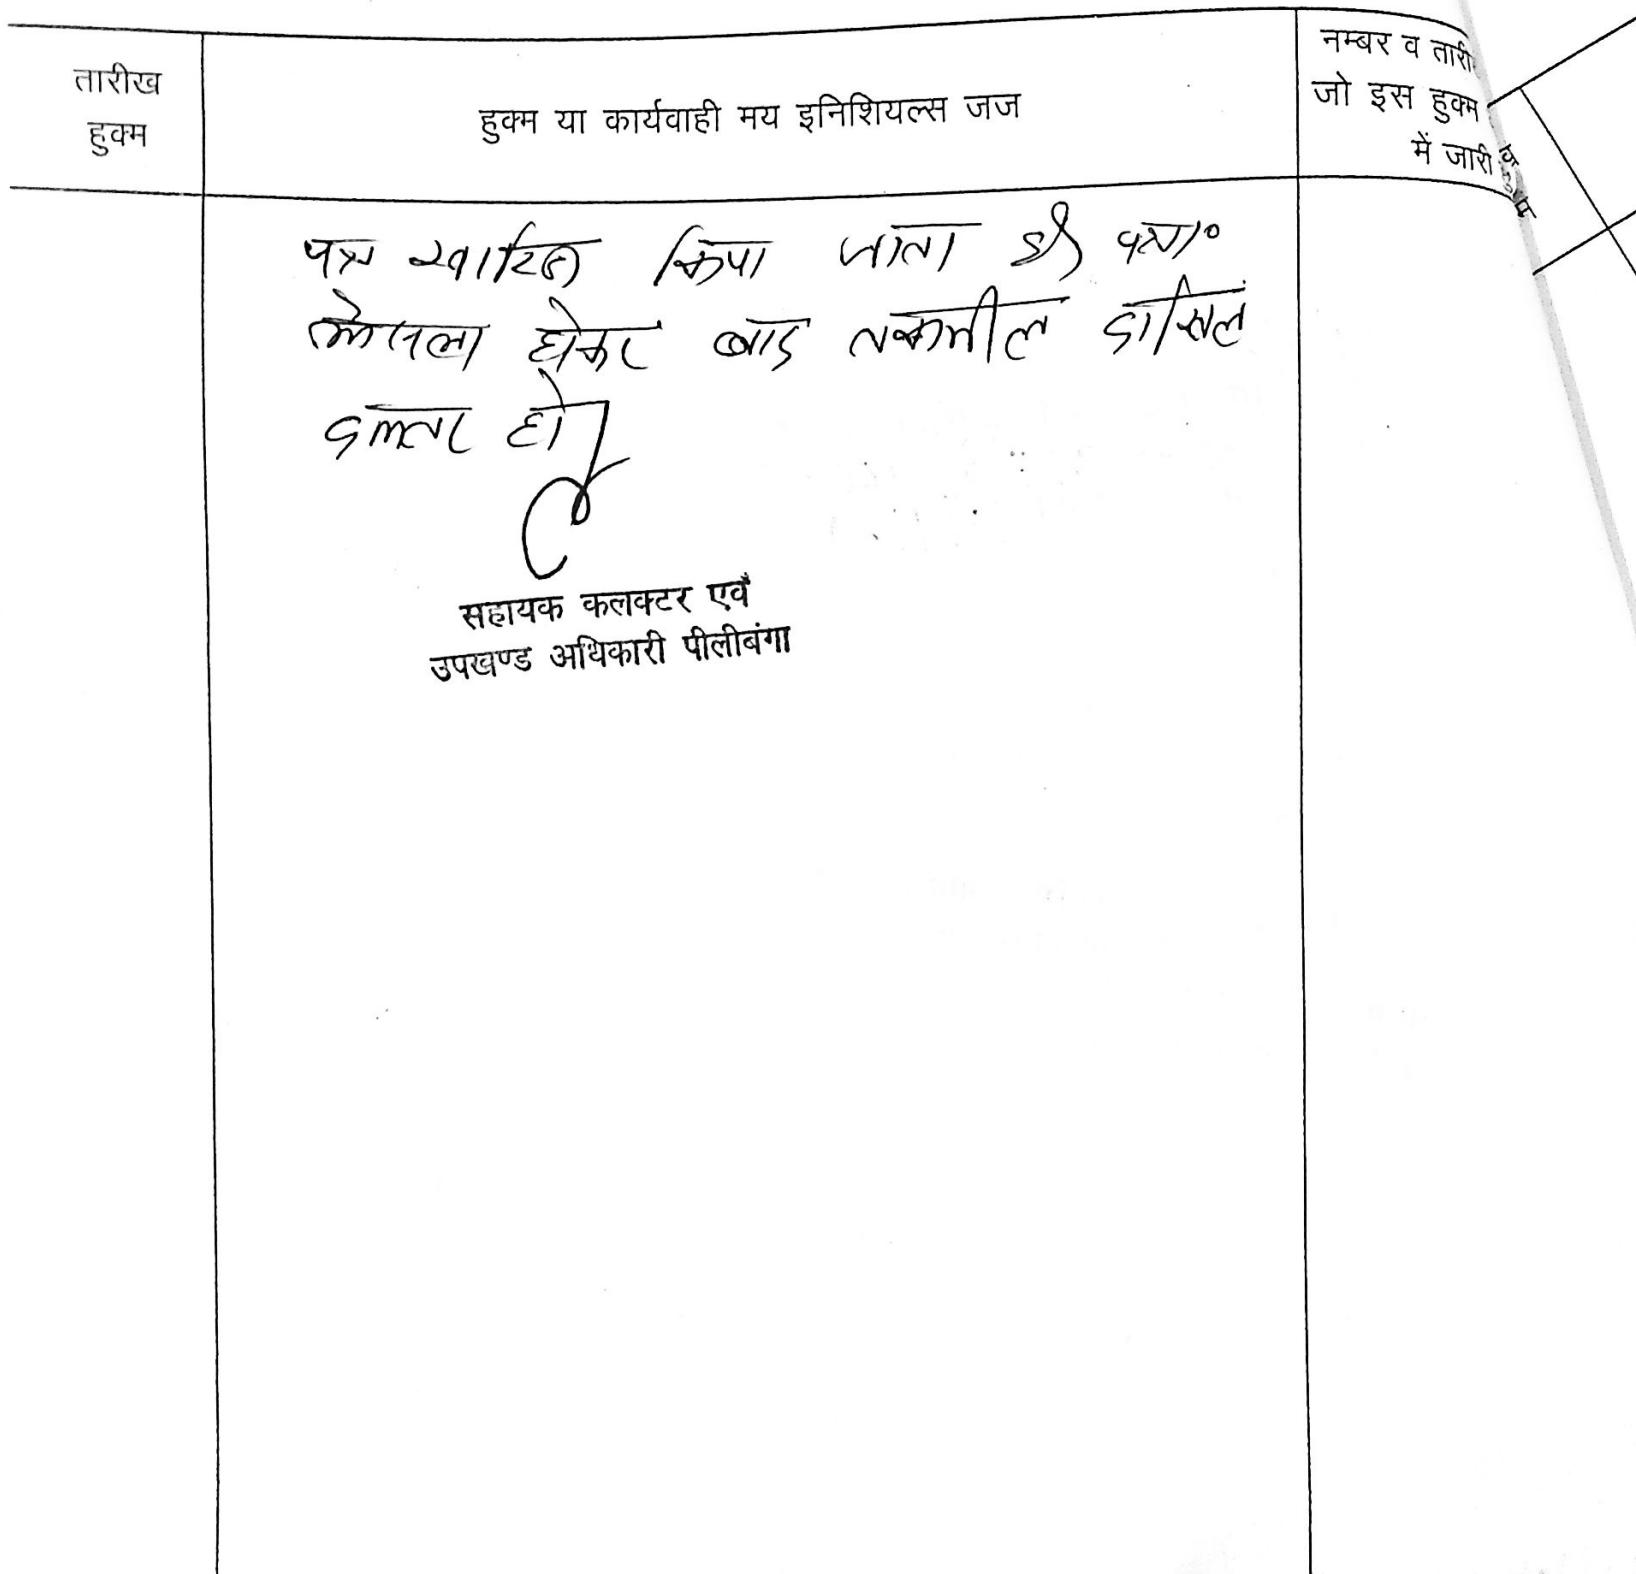 तारीख
हुक्म
हुक्म या कार्यवाही मय इनिशियल्स जज
नम्बर व तारी
जो इस हुक्म
में जारी
हुक्म
पत्र खारिज किया जाता है। पत्रा०
फैसला होकर बाद तकमील दाखिल
दफ्तर हो।
सहायक कलक्टर एवँ
उपखण्ड अधिकारी पीलीबंगा